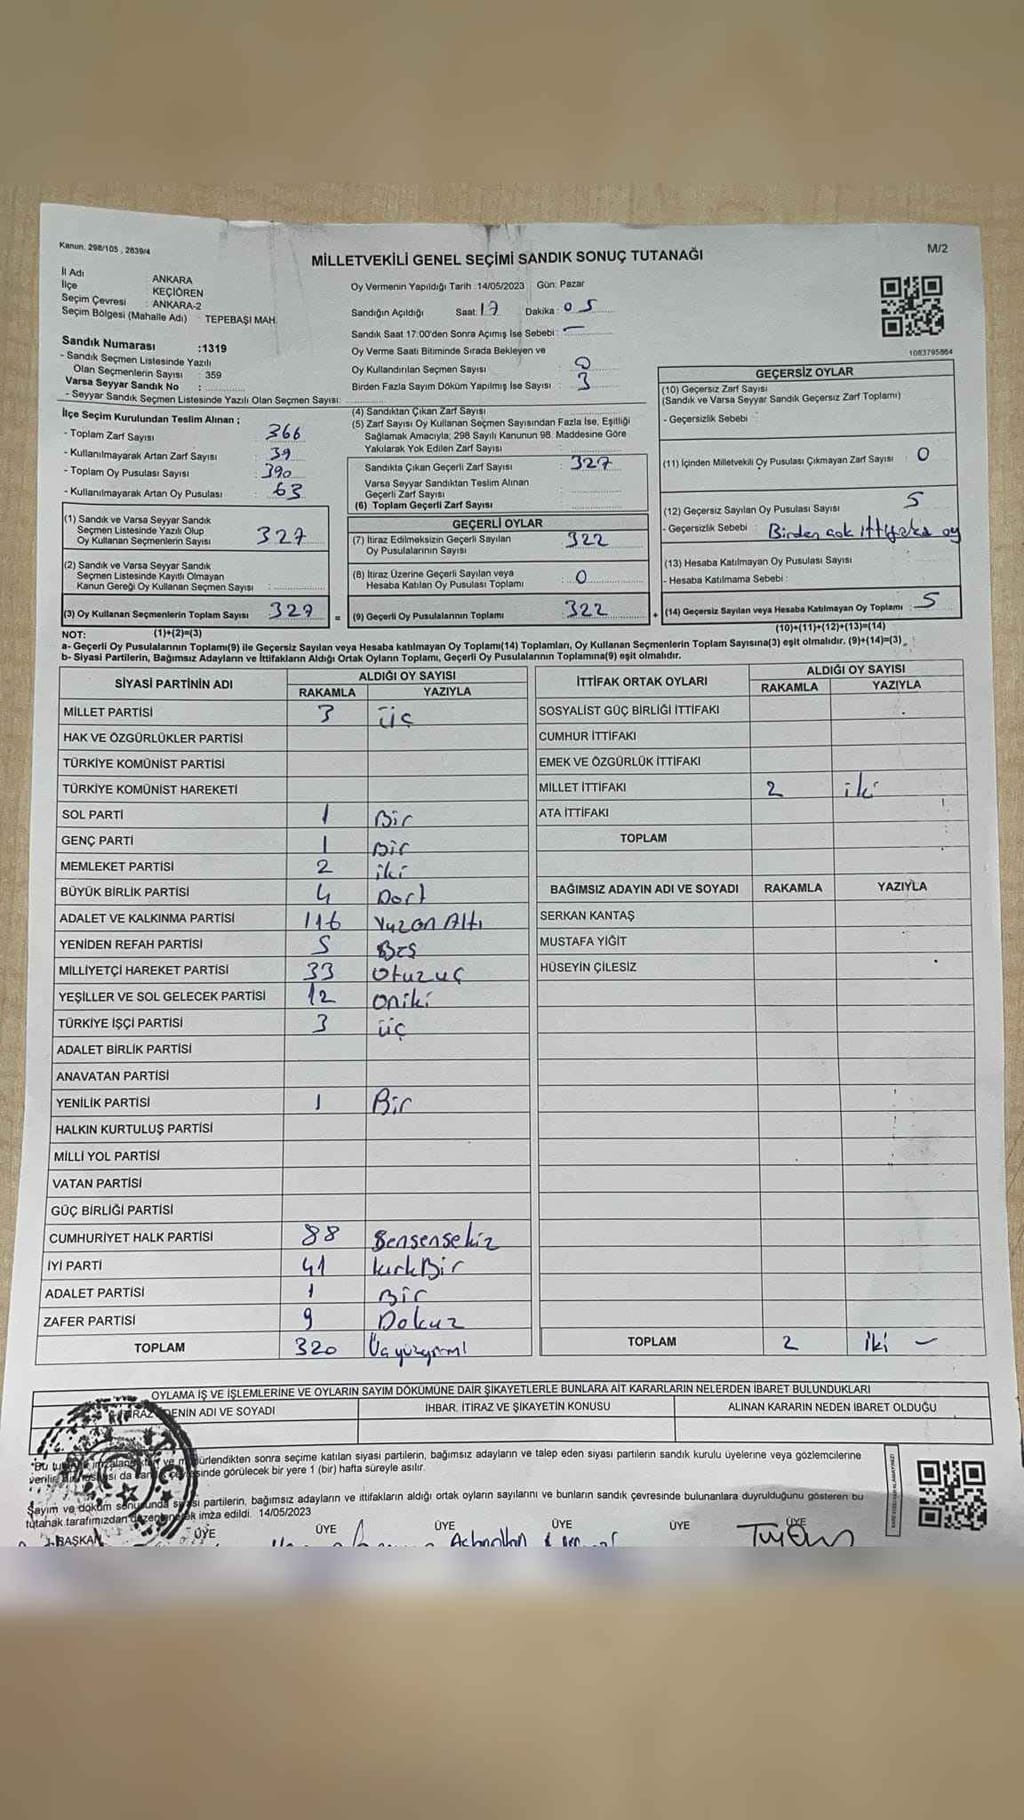 Kanun. 298/105 , 2839/4
M/2
MİLLETVEKİLİ GENEL SEÇİMİ SANDIK SONUÇ TUTANAĞI
İl Adı ANKARA
İlçe KEÇİÖREN
Seçim Çevresi : ANKARA-2
Seçim Bölgesi (Mahalle Adı) : TEPEBAŞI MAH.
Sandık Numarası :1319
- Sandık Seçmen Listesinde Yazılı
Olan Seçmenlerin Sayısı : 359
Varsa Seyyar Sandık No :
- Seyyar Sandık Seçmen Listesinde Yazılı Olan Seçmen Sayısı:
Oy Vermenin Yapıldığı Tarih :14/05/2023 Gün: Pazar
Sandığın Açıldığı Saat: 17 Dakika : 05
Sandık Saat 17:00'den Sonra Açımış İse Sebebi : —
Oy Verme Saati Bitiminde Sırada Bekleyen ve
Oy Kullandırılan Seçmen Sayısı 0
Birden Fazla Sayım Döküm Yapılmış İse Sayısı : 3
1083795864
İlçe Seçim Kurulundan Teslim Alınan ;
- Toplam Zarf Sayısı : 366
- Kullanılmayarak Artan Zarf Sayısı : 39
- Toplam Oy Pusulası Sayısı : 390
- Kullanılmayarak Artan Oy Pusulası : 63
(1) Sandık ve Varsa Seyyar Sandık
Seçmen Listesinde Yazılı Olup
Oy Kullanan Seçmenlerin Sayısı : 327
(2) Sandık ve Varsa Seyyar Sandık
Seçmen Listesinde Kayıtlı Olmayan
Kanun Gereği Oy Kullanan Seçmen Sayısı :
(3) Oy Kullanan Seçmenlerin Toplam Sayısı : 327 =
(1)+(2)=(3)
(4) Sandıktan Çıkan Zarf Sayısı
(5) Zarf Sayısı Oy Kullanan Seçmen Sayısından Fazla İse, Eşitliği
Sağlamak Amacıyla; 298 Sayılı Kanunun 98. Maddesine Göre
Yakılarak Yok Edilen Zarf Sayısı
Sandıkta Çıkan Geçerli Zarf Sayısı 327
Varsa Seyyar Sandıktan Teslim Alınan
Geçerli Zarf Sayısı
(6) Toplam Geçerli Zarf Sayısı
GEÇERLİ OYLAR
(7) İtiraz Edilmeksizin Geçerli Sayılan
Oy Pusulalarının Sayısı : 322
(8) İtiraz Üzerine Geçerli Sayılan veya
Hesaba Katılan Oy Pusulası Toplamı : 0
(9) Geçerli Oy Pusulalarının Toplamı : 322 +
GEÇERSİZ OYLAR
(10) Geçersiz Zarf Sayısı
(Sandık ve Varsa Seyyar Sandık Geçersiz Zarf Toplamı)
- Geçersizlik Sebebi :
(11) İçinden Milletvekili Oy Pusulası Çıkmayan Zarf Sayısı : 0
(12) Geçersiz Sayılan Oy Pusulası Sayısı : 5
- Geçersizlik Sebebi : Birden çok ittifaka oy
(13) Hesaba Katılmayan Oy Pusulası Sayısı
- Hesaba Katılmama Sebebi :
(14) Geçersiz Sayılan veya Hesaba Katılmayan Oy Toplamı : 5
(10)+(11)+(12)+(13)=(14)
NOT:
a- Geçerli Oy Pusulalarının Toplamı(9) ile Geçersiz Sayılan veya Hesaba katılmayan Oy Toplamı(14) Toplamları, Oy Kullanan Seçmenlerin Toplam Sayısına(3) eşit olmalıdır. (9)+(14)=(3)
b- Siyasi Partilerin, Bağımsız Adayların ve İttifakların Aldığı Ortak Oyların Toplamı, Geçerli Oy Pusulalarının Toplamına(9) eşit olmalıdır.
SİYASİ PARTİNİN ADI ALDIĞI OY SAYISI
RAKAMLA YAZIYLA
MİLLET PARTİSİ 3 üç
HAK VE ÖZGÜRLÜKLER PARTİSİ
TÜRKİYE KOMÜNİST PARTİSİ
TÜRKİYE KOMÜNİST HAREKETİ
SOL PARTİ 1 Bir
GENÇ PARTİ 1 Bir
MEMLEKET PARTİSİ 2 iki
BÜYÜK BİRLİK PARTİSİ 4 Dört
ADALET VE KALKINMA PARTİSİ 116 Yuzon Altı
YENİDEN REFAH PARTİSİ 5 Beş
MİLLİYETÇİ HAREKET PARTİSİ 33 Otuzuç
YEŞİLLER VE SOL GELECEK PARTİSİ 12 oniki
TÜRKİYE İŞÇİ PARTİSİ 3 üç
ADALET BİRLİK PARTİSİ
ANAVATAN PARTİSİ
YENİLİK PARTİSİ 1 Bir
HALKIN KURTULUŞ PARTİSİ
MİLLİ YOL PARTİSİ
VATAN PARTİSİ
GÜÇ BİRLİĞİ PARTİSİ
CUMHURİYET HALK PARTİSİ 88 Sensensekiz
İYİ PARTİ 41 kırkBir
ADALET PARTİSİ 1 Bir
ZAFER PARTİSİ 9 Dokuz
TOPLAM 320 Üçyüzyirmi
İTTİFAK ORTAK OYLARI ALDIĞI OY SAYISI
RAKAMLA YAZIYLA
SOSYALİST GÜÇ BİRLİĞİ İTTİFAKI
CUMHUR İTTİFAKI
EMEK VE ÖZGÜRLÜK İTTİFAKI
MİLLET İTTİFAKI 2 iki
ATA İTTİFAKI
TOPLAM
BAĞIMSIZ ADAYIN ADI VE SOYADI RAKAMLA YAZIYLA
SERKAN KANTAŞ
MUSTAFA YİĞİT
HÜSEYİN ÇİLESİZ
TOPLAM 2 iki —
OYLAMA İŞ VE İŞLEMLERİNE VE OYLARIN SAYIM DÖKÜMÜNE DAİR ŞİKAYETLERLE BUNLARA AİT KARARLARIN NELERDEN İBARET BULUNDUKLARI
İTİRAZ EDENİN ADI VE SOYADI İHBAR, İTİRAZ VE ŞİKAYETİN KONUSU ALINAN KARARIN NEDEN İBARET OLDUĞU
ürlendikten sonra seçime katılan siyasi partilerin, bağımsız adayların ve talep eden siyasi partilerin sandık kurulu üyelerine veya gözlemcilerine
sinde görülecek bir yere 1 (bir) hafta süreyle asılır.
Sayım ve döküm sonucunda siyasi partilerin, bağımsız adayların ve ittifakların aldığı ortak oyların sayılarını ve bunların sandık çevresinde bulunanlara duyrulduğunu gösteren bu
tutanak tarafımızdan düzenlenerek imza edildi. 14/05/2023
BAŞKAN ÜYE ÜYE ÜYE ÜYE ÜYE ÜYE